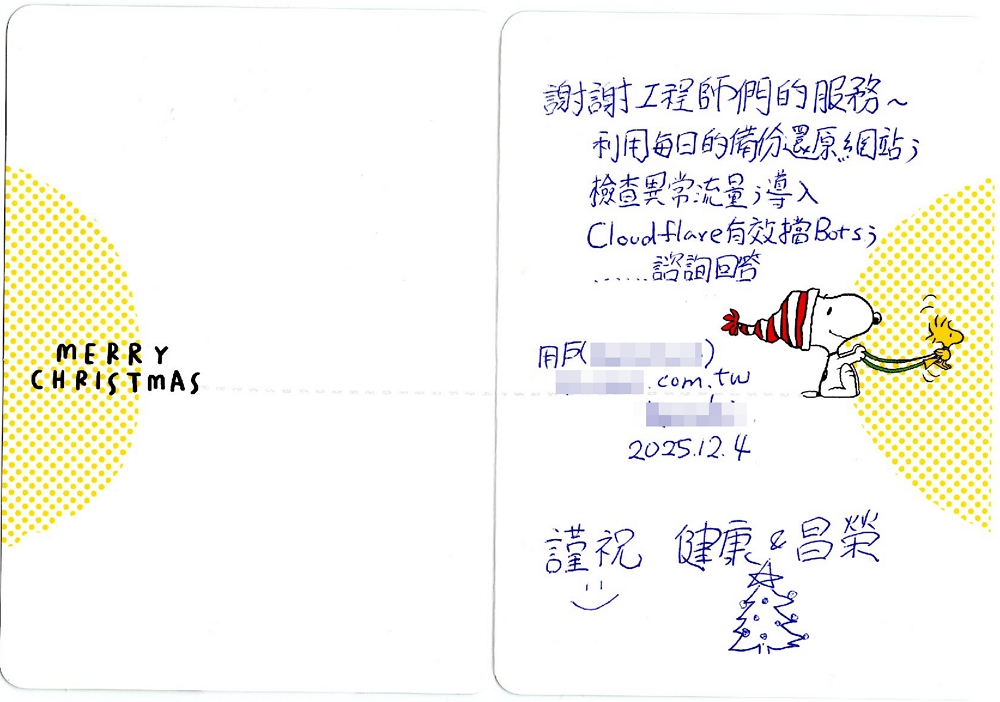 MERRY
CHRISTMAS
謝謝工程師們的服務~
利用每日的備份還原網站；
檢查異常流量；導入
Cloudflare有效擋Bots；
......諮詢回答
用戶( )
.com.tw
2025.12.4
謹祝 健康 & 昌榮